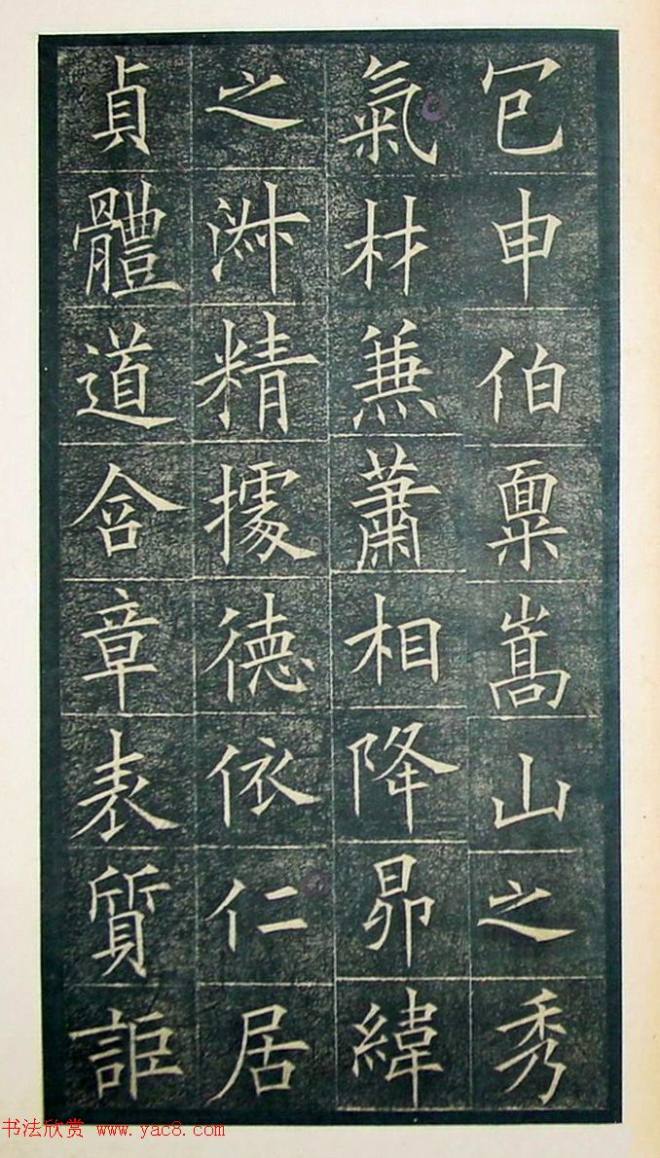 㝐申伯稟嵩山之秀
氣材蒹蕭相降昴緯
之淋精據德依仁居
貞體道含章表質詎
书法欣赏 www.yac8.com